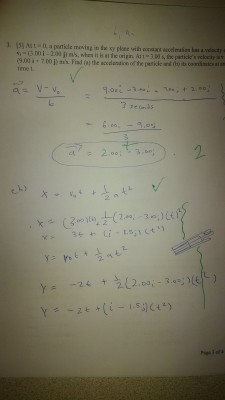 3. [5] At t = 0, a particle moving in the xy plane with constant acceleration has a velocity
v₀ = (3.00 i - 2.00 j) m/s, when it is at the origin. At t = 3.00 s, the particle's velocity is
(9.00 i + 7.00 j) m/s. Find (a) the acceleration of the particle and (b) its coordinates at
time t.
a = v - v₀
t
= 9.00i
3 seconds
= 6.00i - 9.00j
3
a = 2.00i 3.00j
2
(b) x = v₀t + 1/2 at²
x = (3m/s)t 1/2 (2.00i - 3.00j)(t)²
x = 3t + (i - 1.5j)(t²)
y = v₀t + 1/2 at²
y = -2t + 1/2 (2.00i - 3.00j)(t²)
y = -2t + (i - 1.5j)(t²)